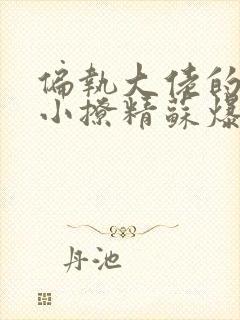 偏執大佬的
小撩精蘇爆
丹池